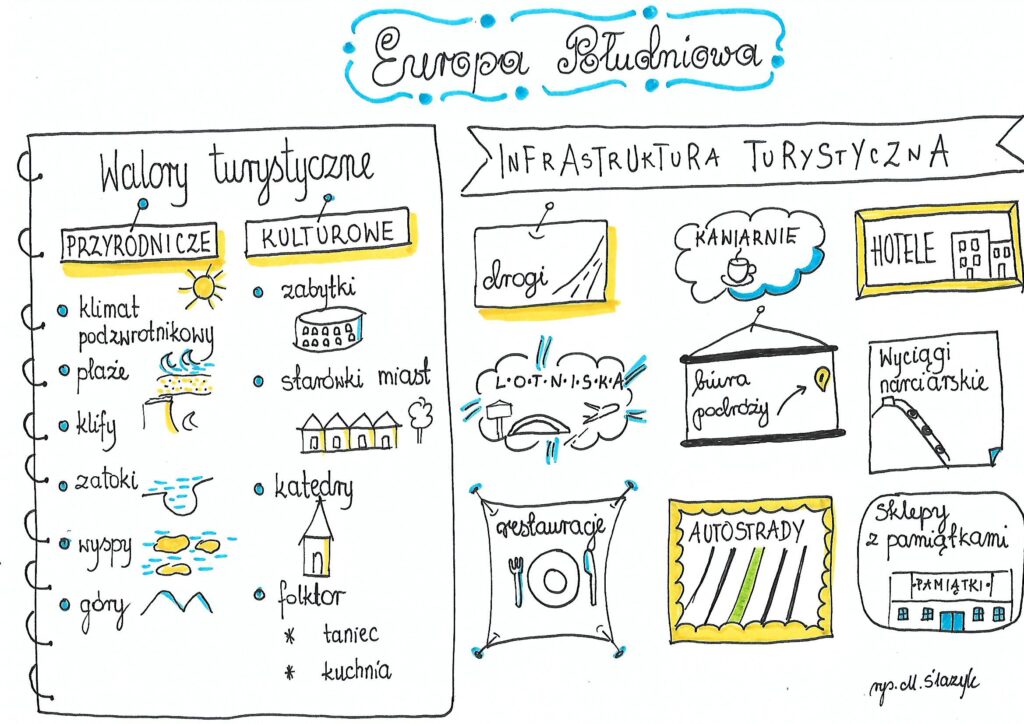 Europa Południowa
Walory turystyczne
PRZYRODNICZE
klimat
podzwrotnikowy
plaże
klify
zatoki
wyspy
góry
KULTUROWE
zabytki
starówki miast
katedry
folklor
* taniec
* kuchnia
INFRASTRUKTURA TURYSTYCZNA
drogi
KAWIARNIE
HOTELE
L·O·T·N·I·S·K·A
biura
podróży
Wyciągi
narciarskie
restauracje
AUTOSTRADY
Sklepy
z pamiątkami
·PAMIĄTKI·
rys. M. Ślazyk